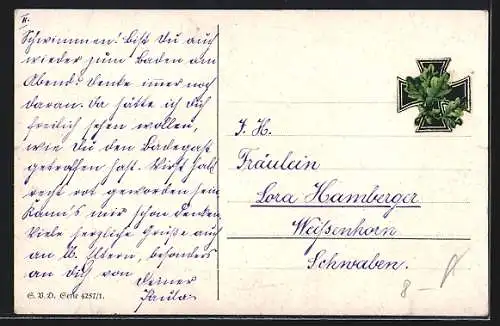 II.
Schwimmen! Bist du auch
wieder zum Baden am
Abend? Denke immer noch
daran. Da hätte ich dich
freilich sehen wollen,
wie du den Badegast
getroffen hast. Wirst halt
recht rot geworden sein
Kann's mir schon denken.
Viele herzliche Grüße auch
an lb. Eltern, besonders
an dich von Deiner
Paula.
S. V. D. Serie 4257/1.
I. H.
Fräulein
Lora Hamberger
Weißenhorn
Schwaben.
8 —